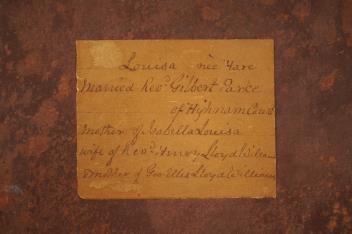 Louisa née Hare
Married Revd. Gilbert Parke
of Highnam Court
Mother of Isabella Louisa
wife of Revd. Henry Lloyd William
& mother of Geo Ellis Lloyd William